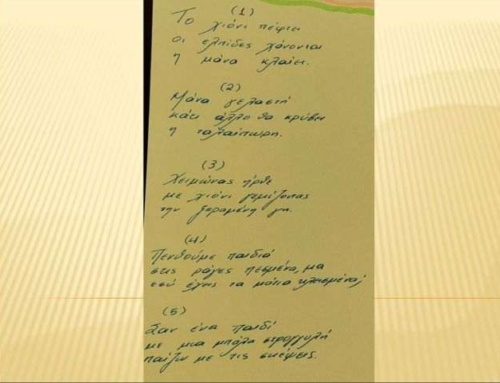 (1)
Το χιόνι πέφτει
οι ελπίδες χάνονται
η μάνα κλαίει.
(2)
Μάνα γελαστή
κάτι άλλο θα κρύβει
η ταλαίπωρη.
(3)
Χειμώνας ήρθε
με χιόνι γεμίζοντας
την ξεραμένη γη.
(4)
Πενθούμε παιδιά
στις ράγες πεσμένα, μα
εσύ έχεις τα μάτια κλεισμένα;
(5)
Σαν ένα παιδί
με μια μπάλα στρογγυλή
παίζω με τις σκέψεις.